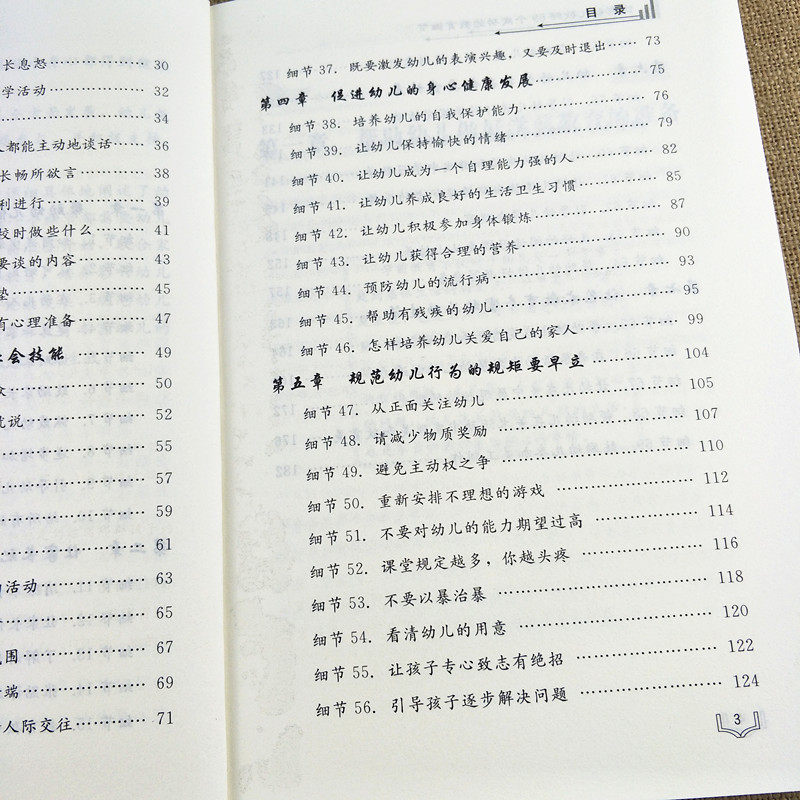 长息怒 30
学活动 32
34
人都能主动地谈话 36
长畅所欲言 38
利进行 39
校时做些什么 41
要谈的内容 43
垫 45
有心理准备 47
社会技能 49
众 50
说 52
55
57
59
61
活动 63
65
围 67
端 69
人际交往 71
目 录
细节37. 既要激发幼儿的表演兴趣，又要及时退出 73
第四章 促进幼儿的身心健康发展 75
细节38. 培养幼儿的自我保护能力 76
细节39. 让幼儿保持愉快的情绪 79
细节40. 让幼儿成为一个自理能力强的人 82
细节41. 让幼儿养成良好的生活卫生习惯 85
细节42. 让幼儿积极参加身体锻炼 87
细节43. 让幼儿获得合理的营养 90
细节44. 预防幼儿的流行病 93
细节45. 帮助有残疾的幼儿 95
细节46. 怎样培养幼儿关爱自己的家人 99
第五章 规范幼儿行为的规矩要早立 104
细节47. 从正面关注幼儿 105
细节48. 请减少物质奖励 107
细节49. 避免主动权之争 110
细节50. 重新安排不理想的游戏 112
细节51. 不要对幼儿的能力期望过高 114
细节52. 课堂规定越多，你越头疼 116
细节53. 不要以暴治暴 118
细节54. 看清幼儿的用意 120
细节55. 让孩子专心致志有绝招 122
细节56. 引导孩子逐步解决问题 124
3